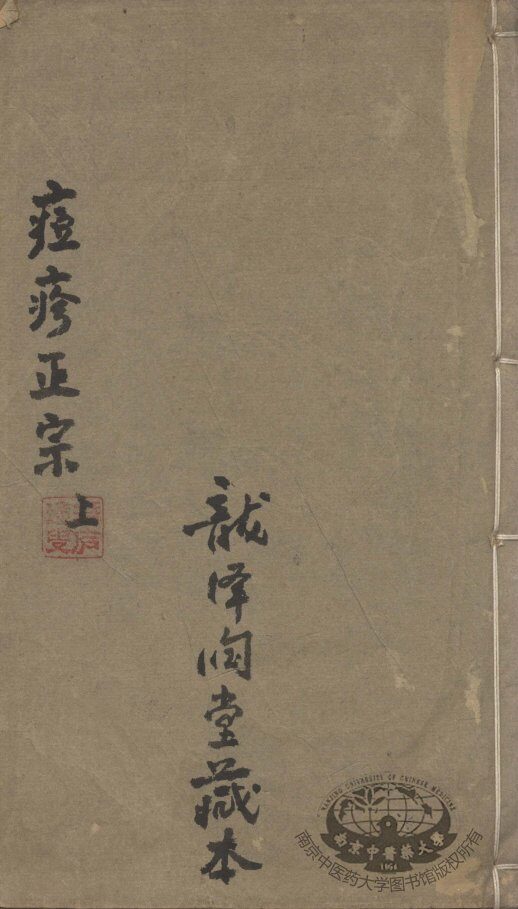 痘疹正宗 上
龍泽陶堂藏本
NANJING UNIVERSITY OF CHINESE MEDICINE
南京中醫藥大學
1954
南京中医药大学图书馆版权所有